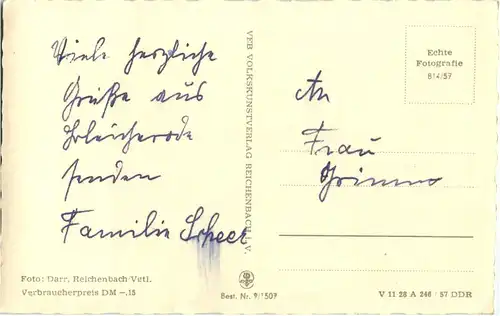 Viele herzliche
Grüße aus
Bleicherode
senden
Familie Scheer
VEB VOLKSKUNSTVERLAG REICHENBACH i. V.
Echte
Fotografie
814/57
An
Frau
Grimm
Foto: Darr, Reichenbach/Vgtl.
Verbraucherpreis DM -.15
Best. Nr. 9/1509
V 11 28 A 246 57 DDR